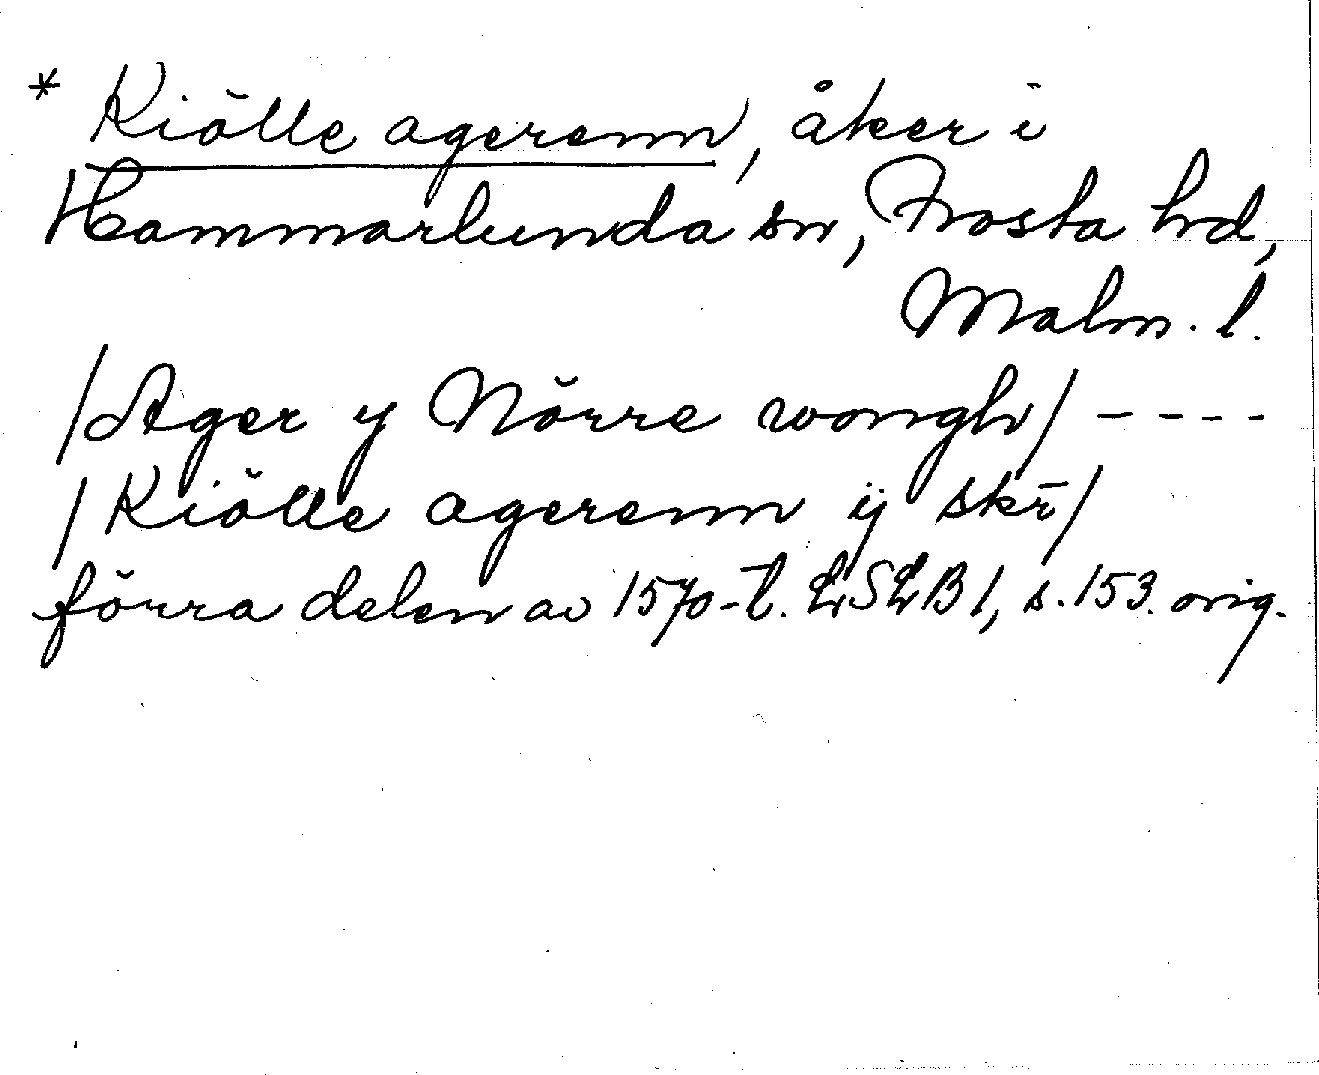 * Kiölle agerenn, åker i
Hammarlunda sn, Frosta hd,
Malm. l.
/Ager y Nörre wongh/ ----
/Kiölle agerenn ij skr̄/
förra delen av 1570-t. LSLB 1, s. 153. orig.